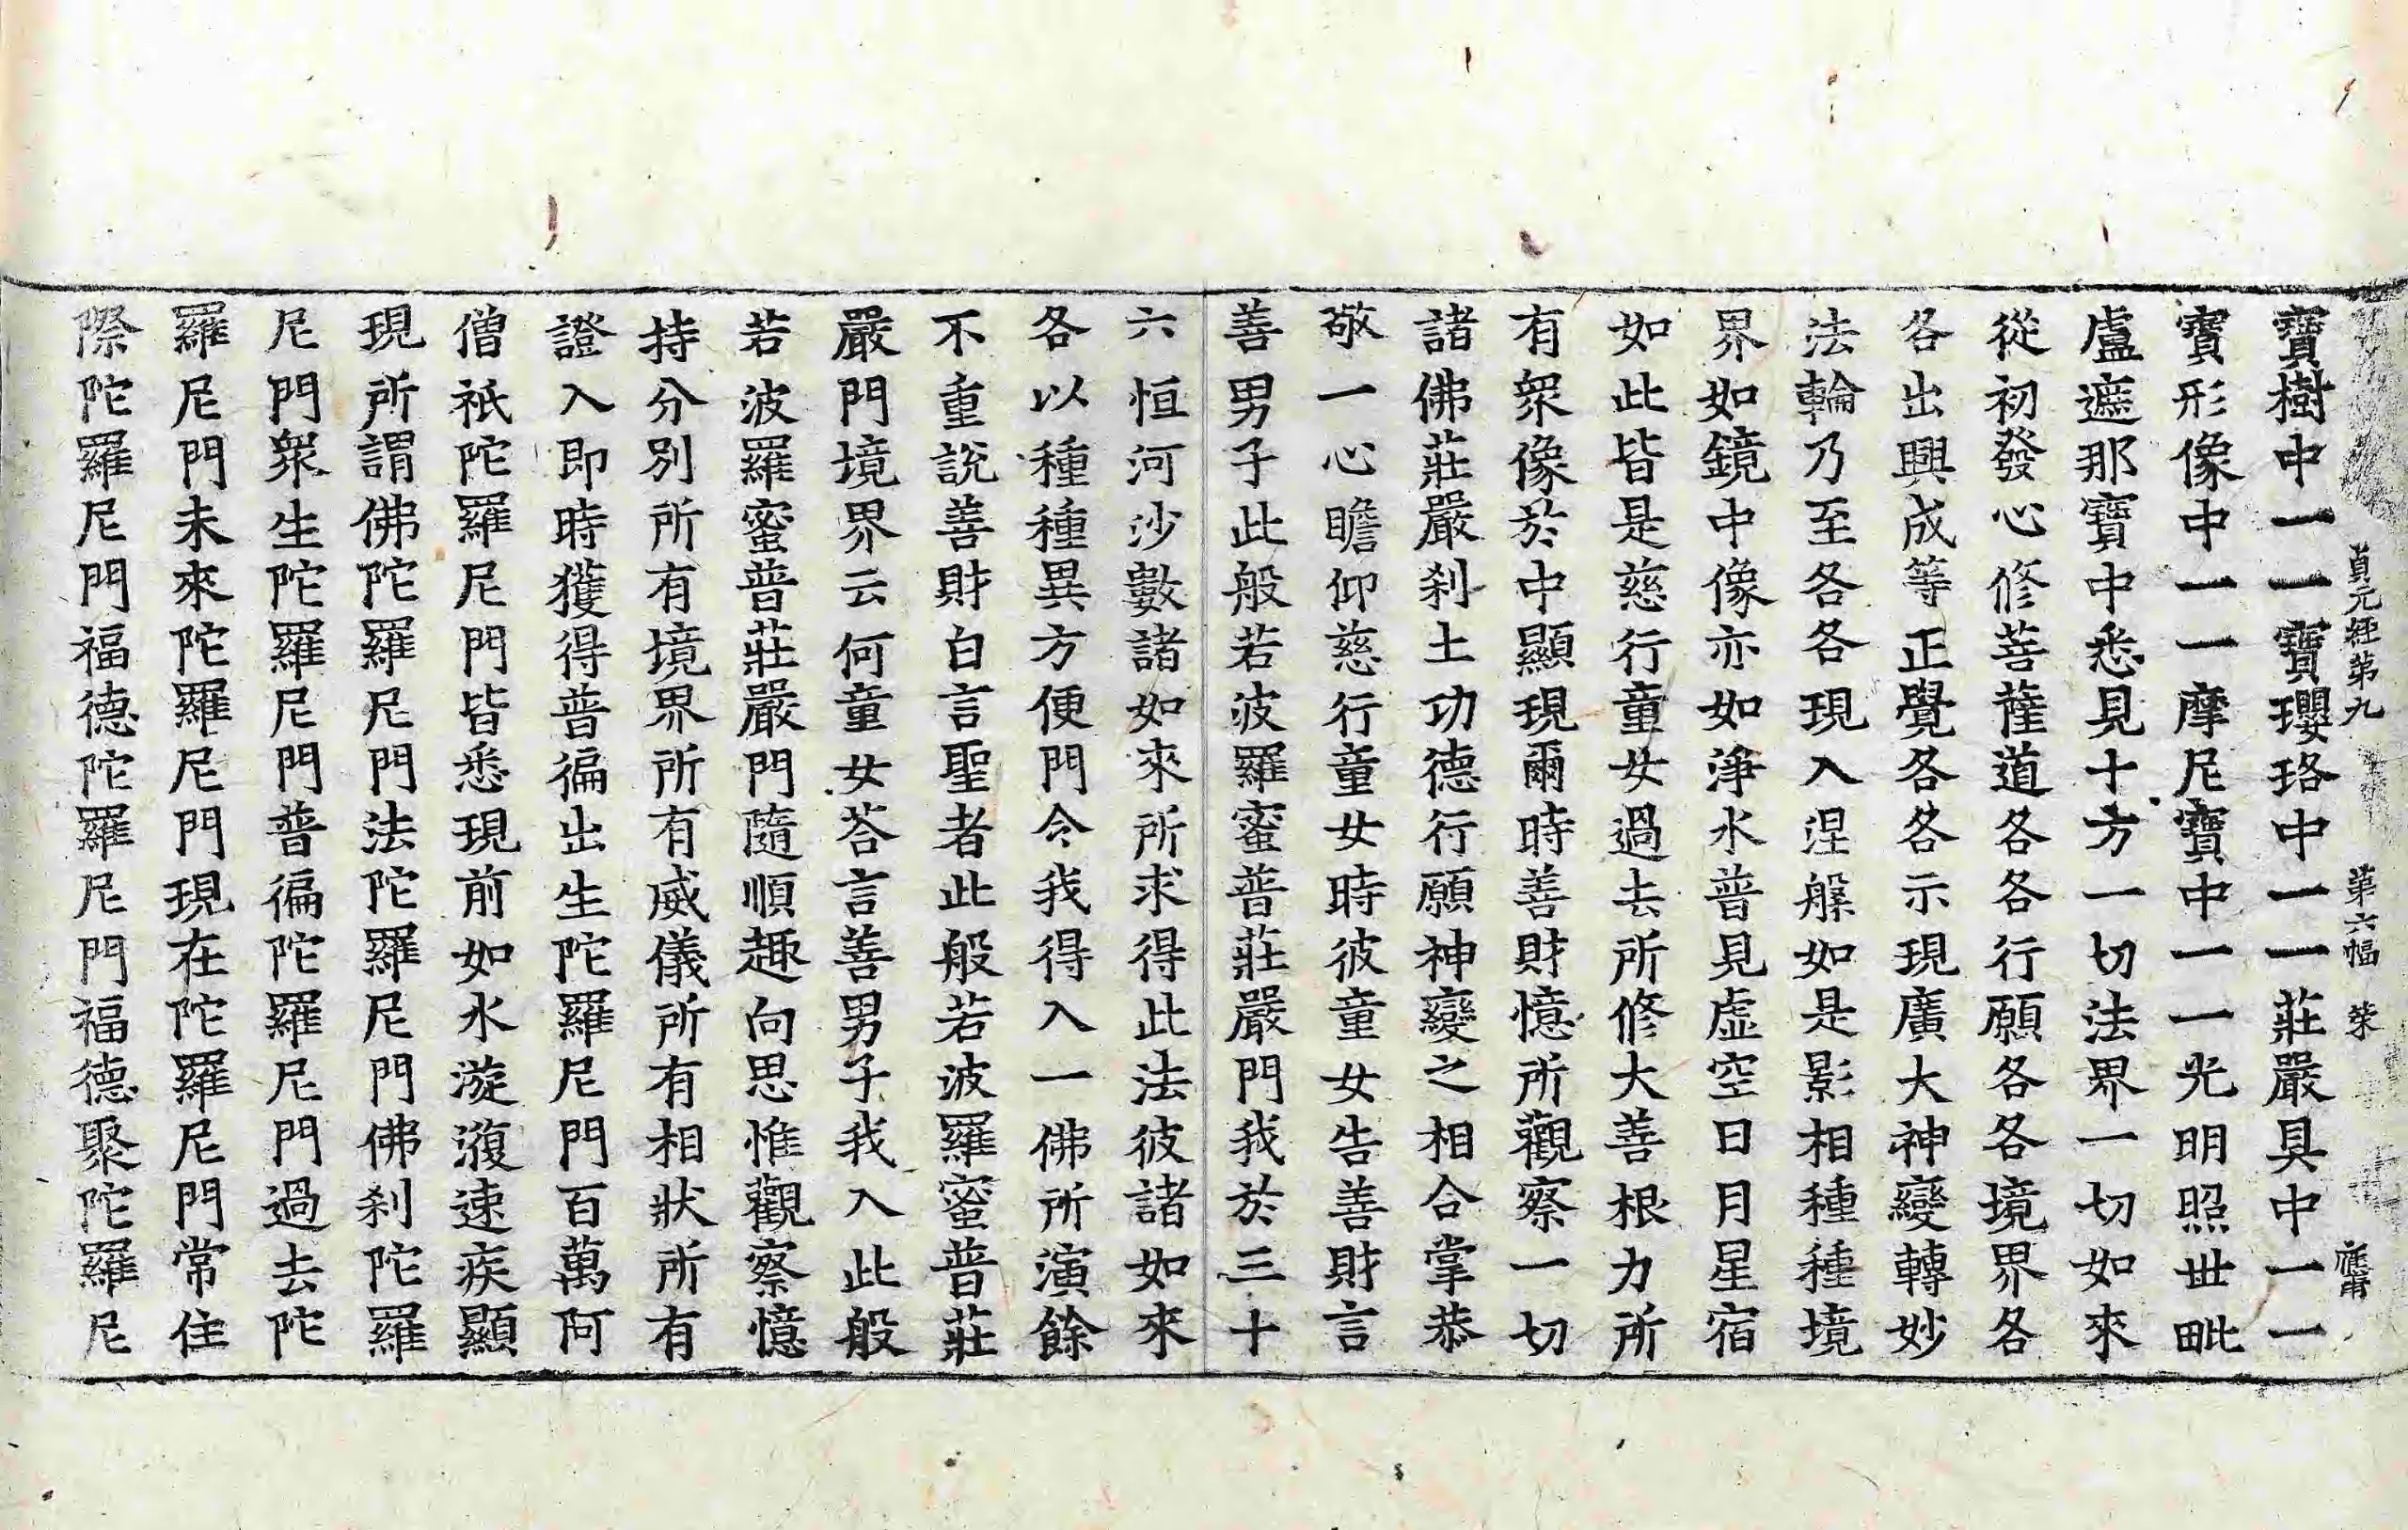 貞元經第九 第六幅 榮
寶樹中一一寶瓔珞中一一莊嚴具中一一
寶形像中一一摩尼寶中一一光明照世毗
盧遮那寶中悉見十方一切法界一切如來
從初發心修菩薩道各各行願各各境界各
各出興成等正覺各各示現廣大神變轉妙
法輪乃至各各現入涅槃如是影相種種境
界如鏡中像亦如淨水普見虛空日月星宿
如此皆是慈行童女過去所修大善根力所
有衆像於中顯現爾時善財憶所觀察一切
諸佛莊嚴刹土功德行願神變之相合掌恭
敬一心瞻仰慈行童女時彼童女告善財言
善男子此般若波羅蜜普莊嚴門我於三十
六恒河沙數諸如來所求得此法彼諸如來
各以種種異方便門令我得入一佛所演餘
不重說善財白言聖者此般若波羅蜜普莊
嚴門境界云何童女荅言善男子我入此般
若波羅蜜普莊嚴門隨順趣向思惟觀察憶
持分別所有境界所有威儀所有相狀所有
證入即時獲得普徧出生陀羅尼門百萬阿
僧祇陀羅尼門皆悉現前如水漩澓速疾顯
現所謂佛陀羅尼門法陀羅尼門佛刹陀羅
尼門衆生陀羅尼門普徧陀羅尼門過去陀
羅尼門未來陀羅尼門現在陀羅尼門常住
際陀羅尼門福德陀羅尼門福德聚陀羅尼